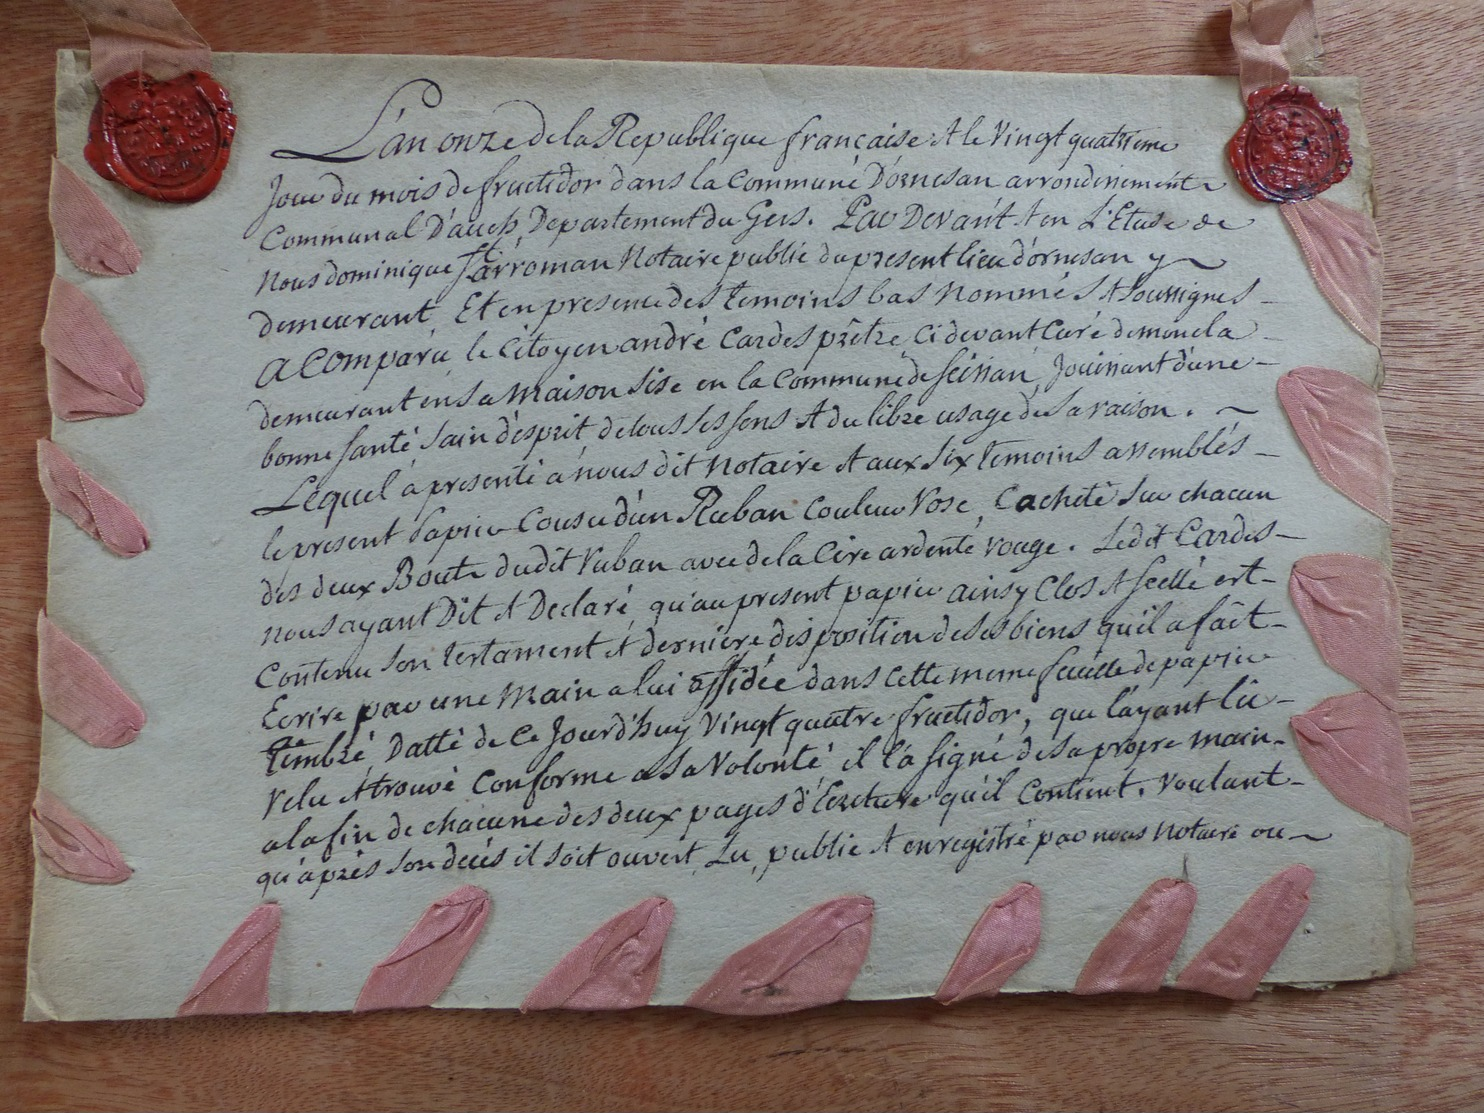 L'an onze de la Republique française & le Vingt quatrieme
Jour du mois de fructidor dans la Commune D'ornesan arrondissement
Communal D'auch, Departement du Gers. Par Devant & en L'Etude de
Nous dominique Sarroman Notaire public du present lieu d'ornesan y
demeurant Et en presence des temoins bas nommés & soussignés
A Comparu le Citoyen andré Cardes prêtre, Ci devant Curé de moncla
demeurant en sa maison sise en la Commune de seissan, Jouissant d'une
bonne santé sain d'esprit de tous ses sens & du libre usage de sa raison.
Lequel a presenté a nous dit Notaire & aux six temoins assemblés
le present papier Cousu d'un Ruban Couleur Rose, Cacheté sur chacun
des deux Bouts dudit ruban avec de la Cire ardente rouge. Ledit Cardes
nous ayant Dit & Declaré qu'au present papier ainsy Clos & scellé est
Contenu son testament & derniere disposition de ses biens qu'il a fait
Ecrire par une Main a lui affidée dans cette meme feuille de papier
timbré Datté de Ce Jourd'huy Vingt quatre fructidor, que l'ayant lu
relu & trouvé Conforme a sa Volonté il l'a signé de sa propre main
a la fin de chacune des deux pages d'Ecriture qu'il Contient. Voulant
qu'après son decés il soit ouvert Lu, publié & enregistré par nous Notaire ou